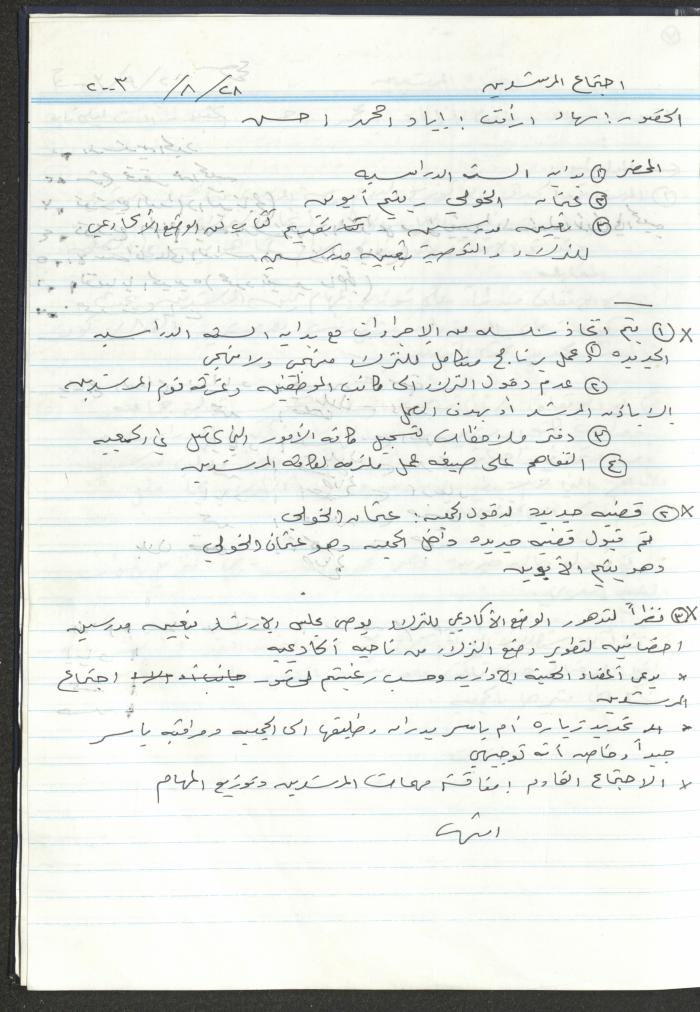 اجتماع المرشدين ٢٨/٨/٢٠٠٣
الحضور: نهاد، رأفت، إياد، محمد، حسن
المحضر ① بداية السنة الدراسية
② عثمان الخولي يتيم أبوين
③ تعيين مدرسين تقديم كتاب عن الوضع الأكاديمي
للنزلاء والتوصية بتعيين مدرسين
x ① يتم اتخاذ سلسله من الإجراءات مع بداية السنة الدراسية
الجديده ① عمل برنامج متكامل للنزلاء منهجي ولا منهجي
② عدم دخول النزلاء الى مكاتب الموظفين وغرفة نوم المرشدين
إلا بإذن المرشد أو بهدف العمل
③ دفتر ملاحظات لتسجيل كافة الأمور التي تحصل في الجمعيه
④ التفاهم على صيغه عمل ملزمه لكافة المرشدين
x ② قضيه جديده لدخول الجمعيه: عثمان الخولي
تم قبول قضيه جديده داخل الجمعيه وهو عثمان الخولي
وهو يتيم الأبوين
x ③ نظراً لتدهور الوضع الأكاديمي للنزلاء يوصي مجلس الإرشاد بتعيين مدرسين
اخصائيين لتطوير وضع النزلاء من ناحيه أكاديميه
x يدعى أعضاء الهيئة الإداريه وحسب رغبتهم لحضور اجتماع
المرشدين
x تحديد زياره أم ياسر بدران وطليقها الى الجمعيه ومراقبة ياسر
جيداً وخاصه أنه توجيهي
x الاجتماع القادم: مناقشة مهمات المرشدين وتوزيع المهام
انتهى